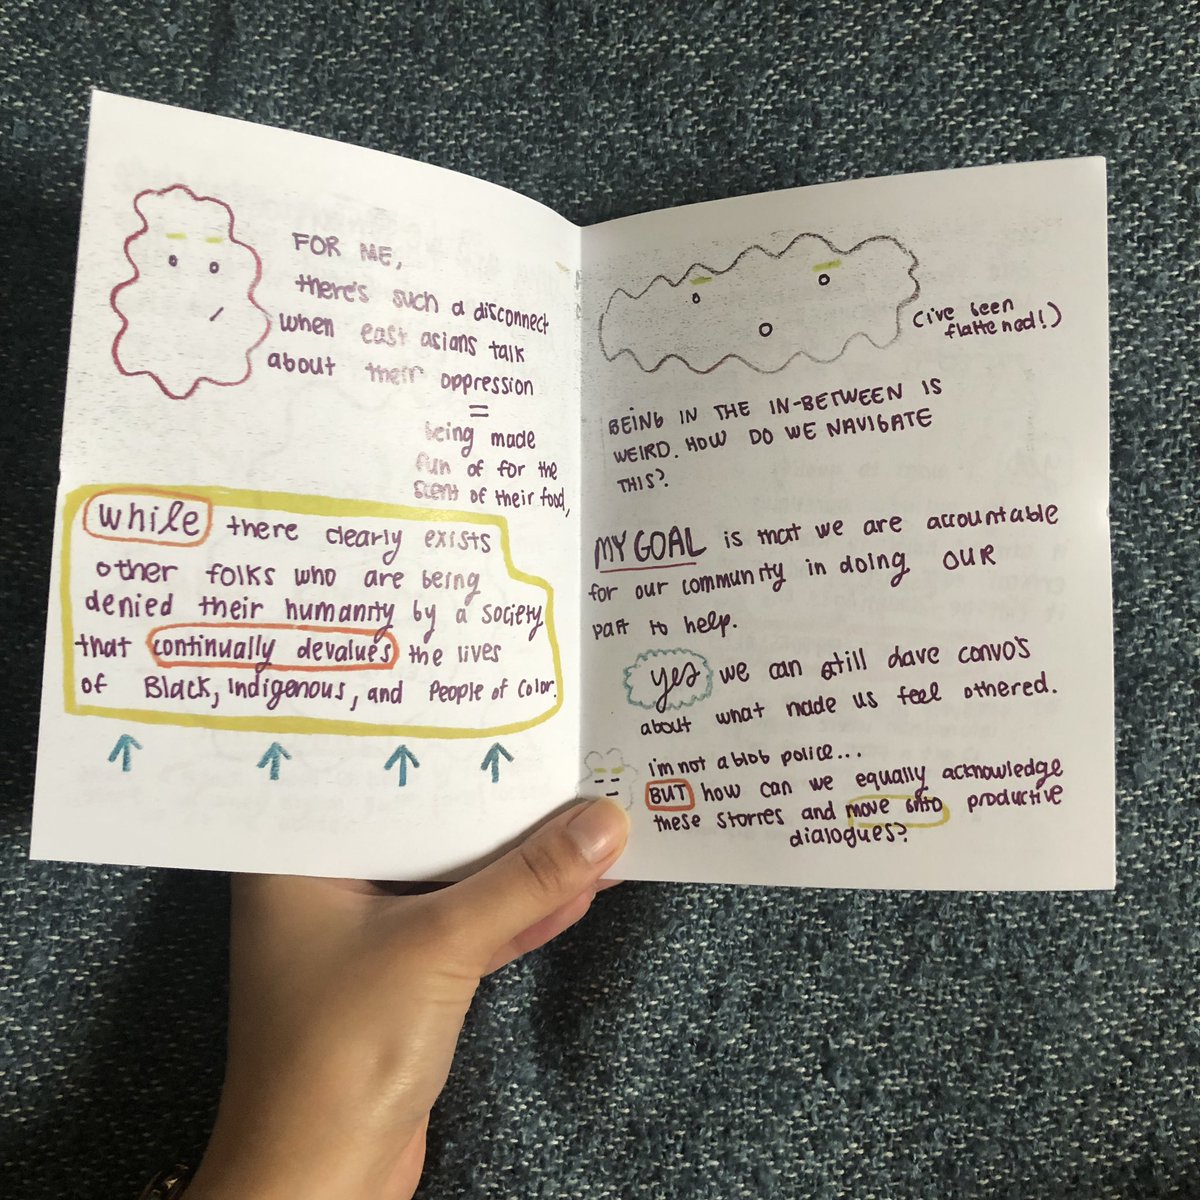 FOR ME,
there's such a disconnect
when east asians talk
about their oppression
=
being made
fun of for the
scent of their food,
while there clearly exists
other folks who are being
denied their humanity by a society
that continually devalues the lives
of Black, Indigenous, and People of Color.
(i've been
flattened!)
BEING IN THE IN-BETWEEN IS
WEIRD. HOW DO WE NAVIGATE
THIS?
MY GOAL is that we are accountable
for our community in doing OUR
part to help.
yes we can still have convo's
about what made us feel othered.
i'm not a blob police...
BUT how can we equally acknowledge
these stories and move onto productive
dialogues?